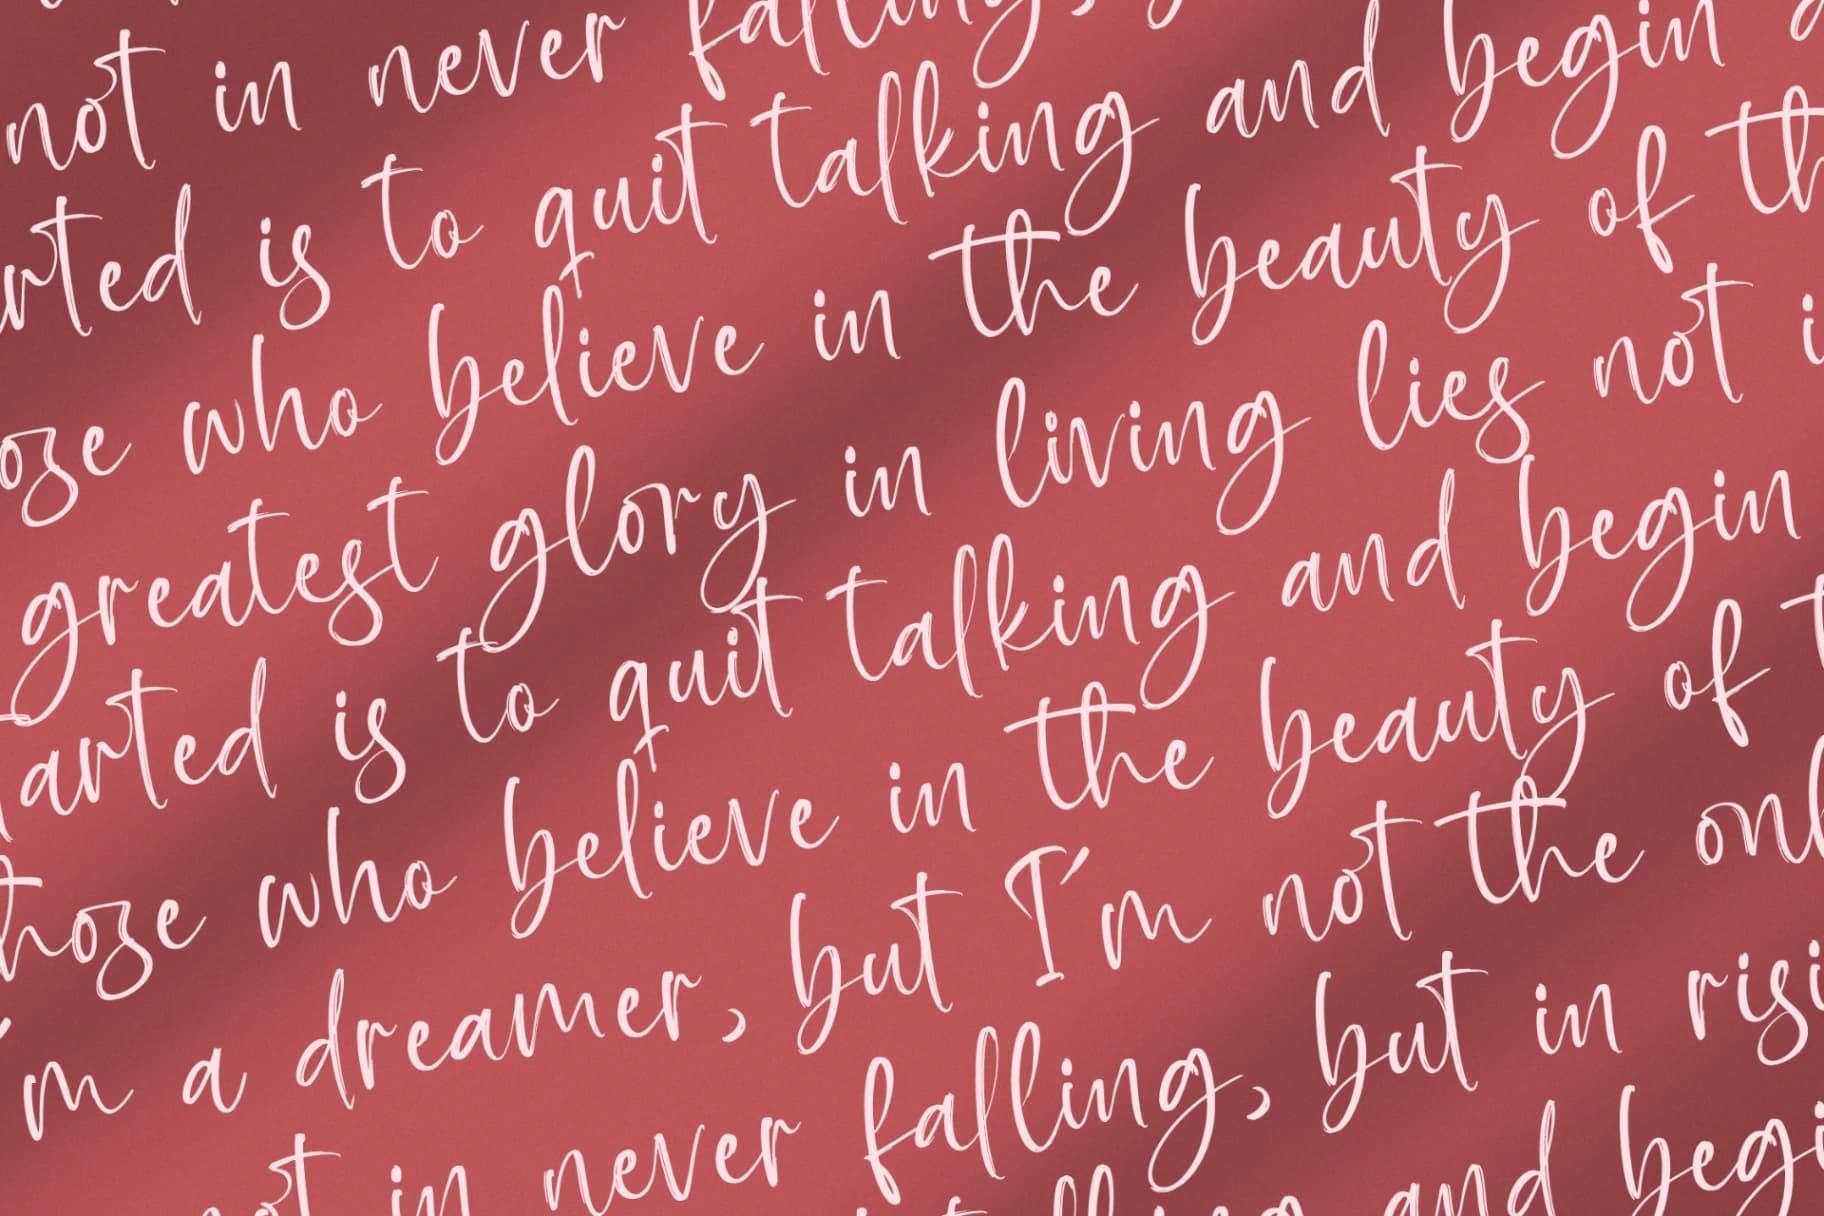 not in never falling,
arted is to quit talking and begin
ose who believe in the beauty of th
greatest glory in living lies not i
arted is to quit talking and begin
those who believe in the beauty of t
'm a dreamer, but I'm not the onl
not in never falling, but in risi
and begi